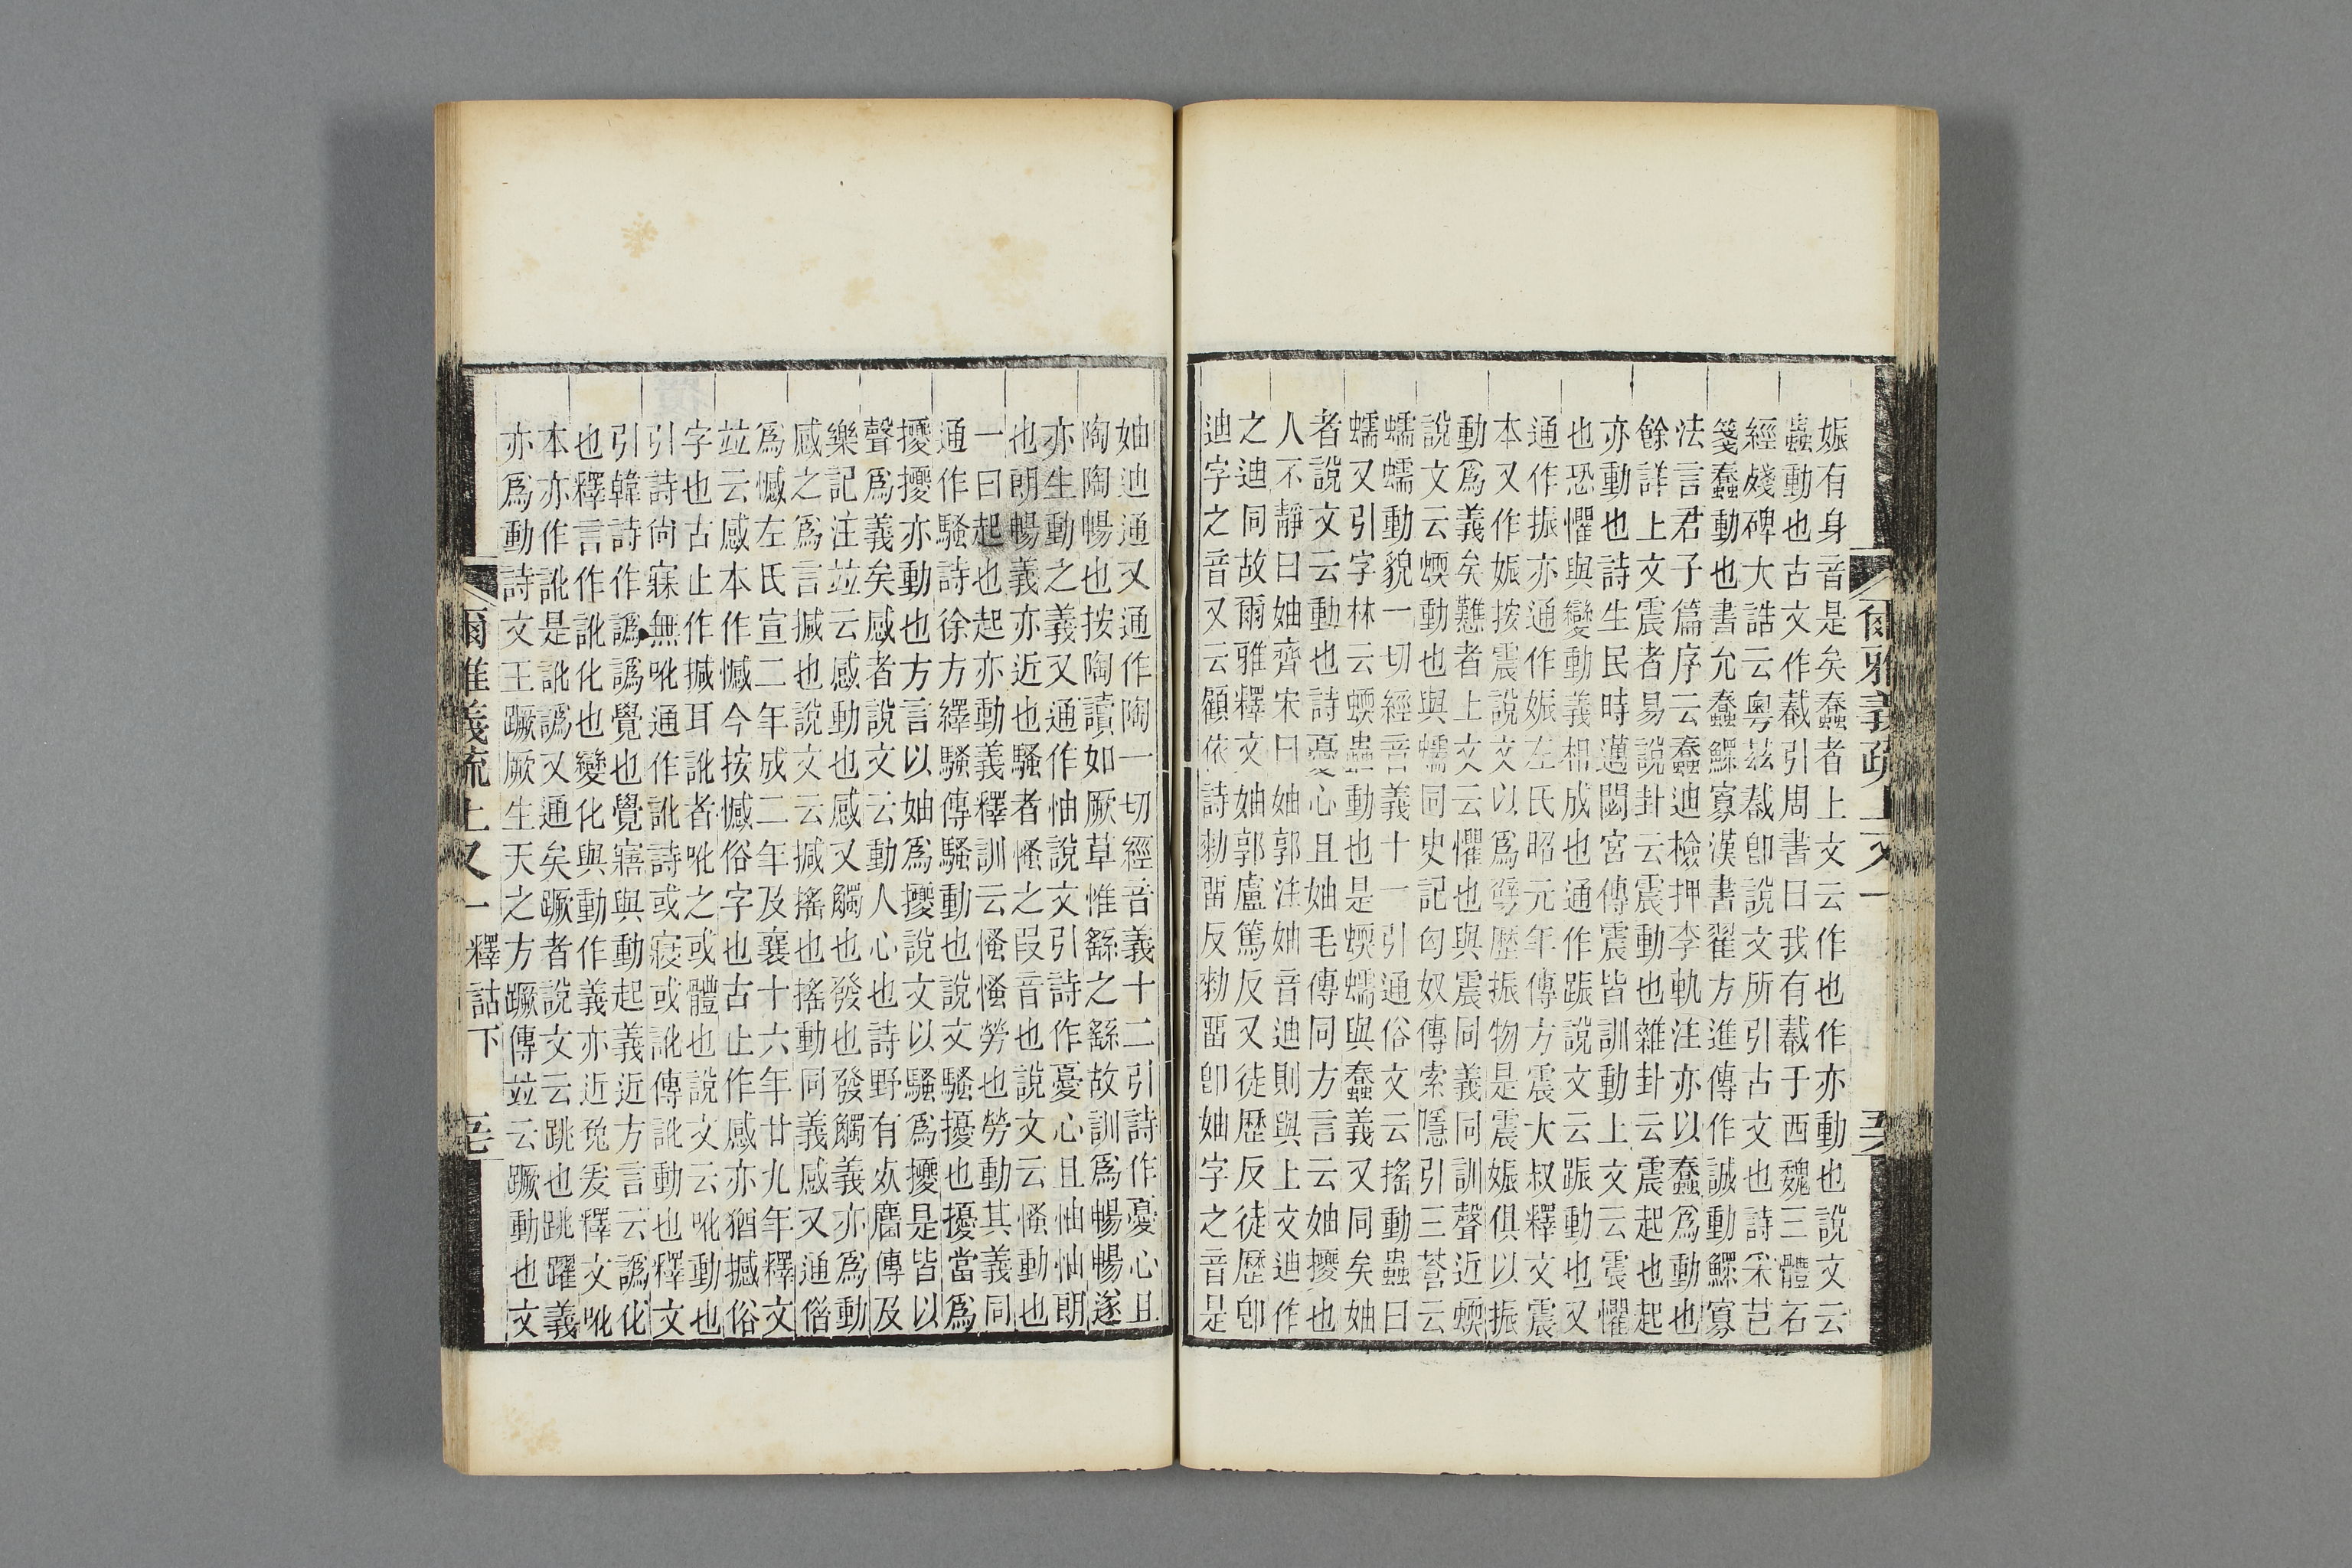 娠有身音是矣蠢者上文云作也作亦動也說文云
蟲動也古文作𢧵引周書曰我有𢧵于西魏三體石
經殘碑大誥云粵茲𢧵卽說文所引古文也詩采芑
箋蠢動也書允蠢鰥寡漢書翟方進傳作誠動鰥寡
法言君子篇序云蠢迪檢押李軌注亦以蠢爲動也
餘詳上文震者易說卦云震動也雜卦云震起也起
亦動也詩生民時邁閟宮傳震皆訓動上文云震懼
也恐懼與變動義相成也通作踬說文云踬動也又
通作振亦通作娠左氏昭元年傳方震大叔釋文震
本又作娠按震說文以爲劈歷振物是震娠俱以振
動爲義矣戁者上文云懼也與震同義同訓聲近蝡
說文云蝡動也與蠕同史記匈奴傳索隱引三蒼云
蠕蠕動貌一切經音義十一引通俗文云搖動蟲曰
蠕又引字林云蝡蟲動也是蝡蠕與蠢義又同矣妯
者說文云動也詩憂心且妯毛傳同方言云妯擾也
人不靜曰妯齊宋曰妯郭注妯音迪則與上文迪作
之迪同故爾雅釋文妯郭盧篤反又徒歷反徒歷卽
迪字之音又云顧依詩勑畱反勑畱卽妯字之音是
爾雅義疏上又一
妯迪通又通作陶一切經音義十二引詩作憂心且
陶陶暢也按陶讀如厥草惟繇之繇故訓爲暢暢遂
亦生動之義又通作怞說文引詩作憂心且怞怞朗
也朗暢義亦近也騷者慅之叚音也說文云慅動也
一曰起也起亦動義釋訓云慅慅勞也勞動其義同
通作騷詩徐方繹騷傳騷動也說文騷擾也擾當爲
擾擾亦動也方言以妯爲擾說文以騷爲擾是皆以
聲爲義矣感者說文云動人心也詩野有𣦸麕傳及
樂記注竝云感動也感又觸也發也發觸義亦爲動
感之爲言撼也說文云撼搖也搖動同義感又通偺
爲憾左氏宣二年成二年及襄十六年廿九年釋文
竝云感本作憾今按憾俗字也古止作感亦猶撼俗
字也古止作撼耳訛者吪之或體也說文云吪動也
引詩尙寐無吪通作訛詩或寢或訛傳訛動也釋文
引韓詩作譌譌覺也覺寤與動起義近方言云譌化
也釋言作訛化也變化與動作義亦近兔爰釋文吪
本亦作訛是訛譌又通矣蹶者說文云跳也跳躍義
亦爲動詩文王蹶厥生天之方蹶傳竝云蹶動也文
爾雅義疏上又一 釋詁下